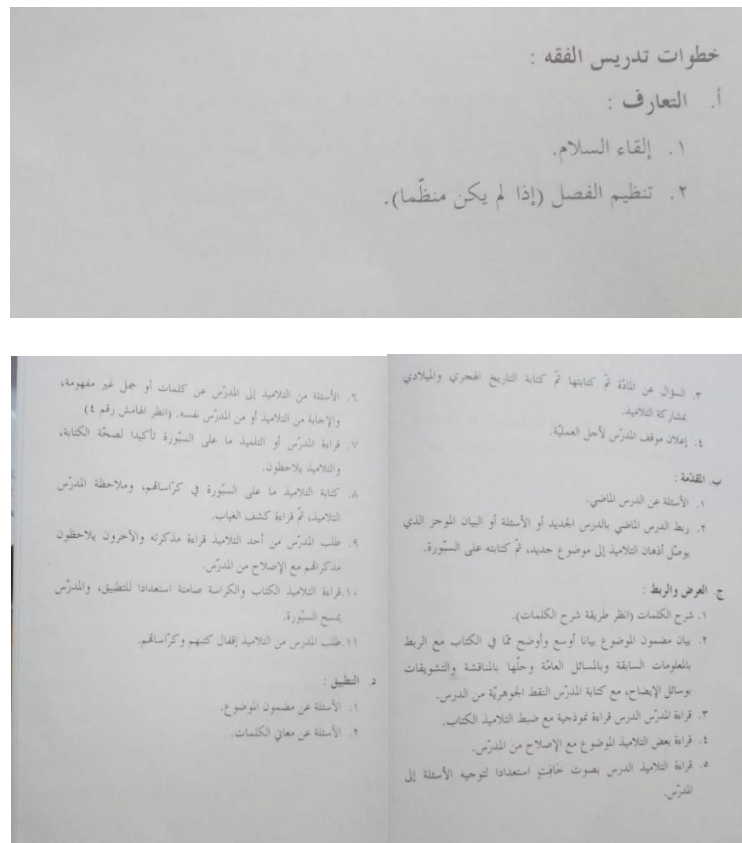 خطوات تدريس الفقه :
أ. التعارف :
١. إلقاء السلام.
٢. تنظيم الفصل (إذا لم يكن منظّما).
٣. السؤال عن المادّة ثمّ كتابتها ثمّ كتابة التاريخ الهجري والميلادي
بمشاركة التلاميذ.
٤. إعلان موقف المدرّس لأجل العمليّة.
ب. المقدّمة :
١. الأسئلة عن الدرس الماضي.
٢. ربط الدرس الماضي بالدرس الجديد أو الأسئلة أو البيان الموجز الذي
يوصّل أذهان التلاميذ إلى موضوع جديد، ثمّ كتابته على السبّورة.
ج. العرض والربط :
١. شرح الكلمات (انظر طريقة شرح الكلمات).
٢. بيان مضمون الموضوع بيانا أوسع وأوضح ممّا في الكتاب مع الربط
بالمعلومات السابقة وبالمسائل العامّة وحلّها بالمناقشة والتشويقات
بوسائل الإيضاح، مع كتابة المدرّس النقط الجوهريّة من الدرس.
٣. قراءة المدرّس الدرس قراءة نموذجية مع ضبط التلاميذ الكتاب.
٤. قراءة بعض التلاميذ الموضوع مع الإصلاح من المدرّس.
٥. قراءة التلاميذ الدرس بصوت خَافِتٍ استعدادا لتوجيه الأسئلة إلى
المدرّس.
٦. الأسئلة من التلاميذ إلى المدرّس عن كلمات أو جمل غير مفهومة،
والإجابة من التلاميذ أو من المدرّس نفسه. (انظر الهامش رقم ٤)
٧. قراءة المدرّس أو التلميذ ما على السبّورة تأكيدا لصحّة الكتابة،
والتلاميذ يلاحظون.
٨. كتابة التلاميذ ما على السبّورة في كرّاساتهم، وملاحظة المدرّس
التلاميذ، ثمّ قراءة كشف الغياب.
٩. طلب المدرّس من أحد التلاميذ قراءة مذكرته والآخرون يلاحظون
مذكراتهم مع الإصلاح من المدرّس.
١٠.قراءة التلاميذ الكتاب والكراسة صامتة استعدادا للتطبيق، والمدرّس
يمسح السبّورة.
١١.طلب المدرس من التلاميذ إقفال كتبهم وكرّاساتهم.
د. التطبيق :
١. الأسئلة عن مضمون الموضوع.
٢. الأسئلة عن معاني الكلمات.